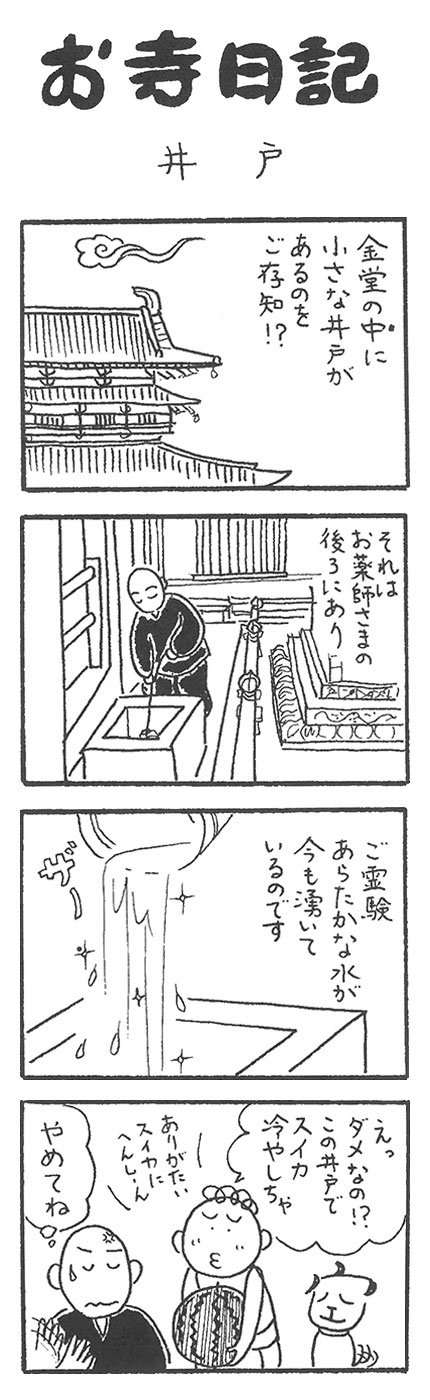 お寺日記
井戸
金堂の中に
小さな井戸が
あるのを
ご存知!?
それは
お薬師さまの
後ろにあり
ご霊験
あらたかな水が
今も湧いて
いるのです
ザーッ
えっ
ダメなの!?
この井戸で
スイカ
冷やしちゃ
ありがたい
スイカに
へんしーん
やめてね